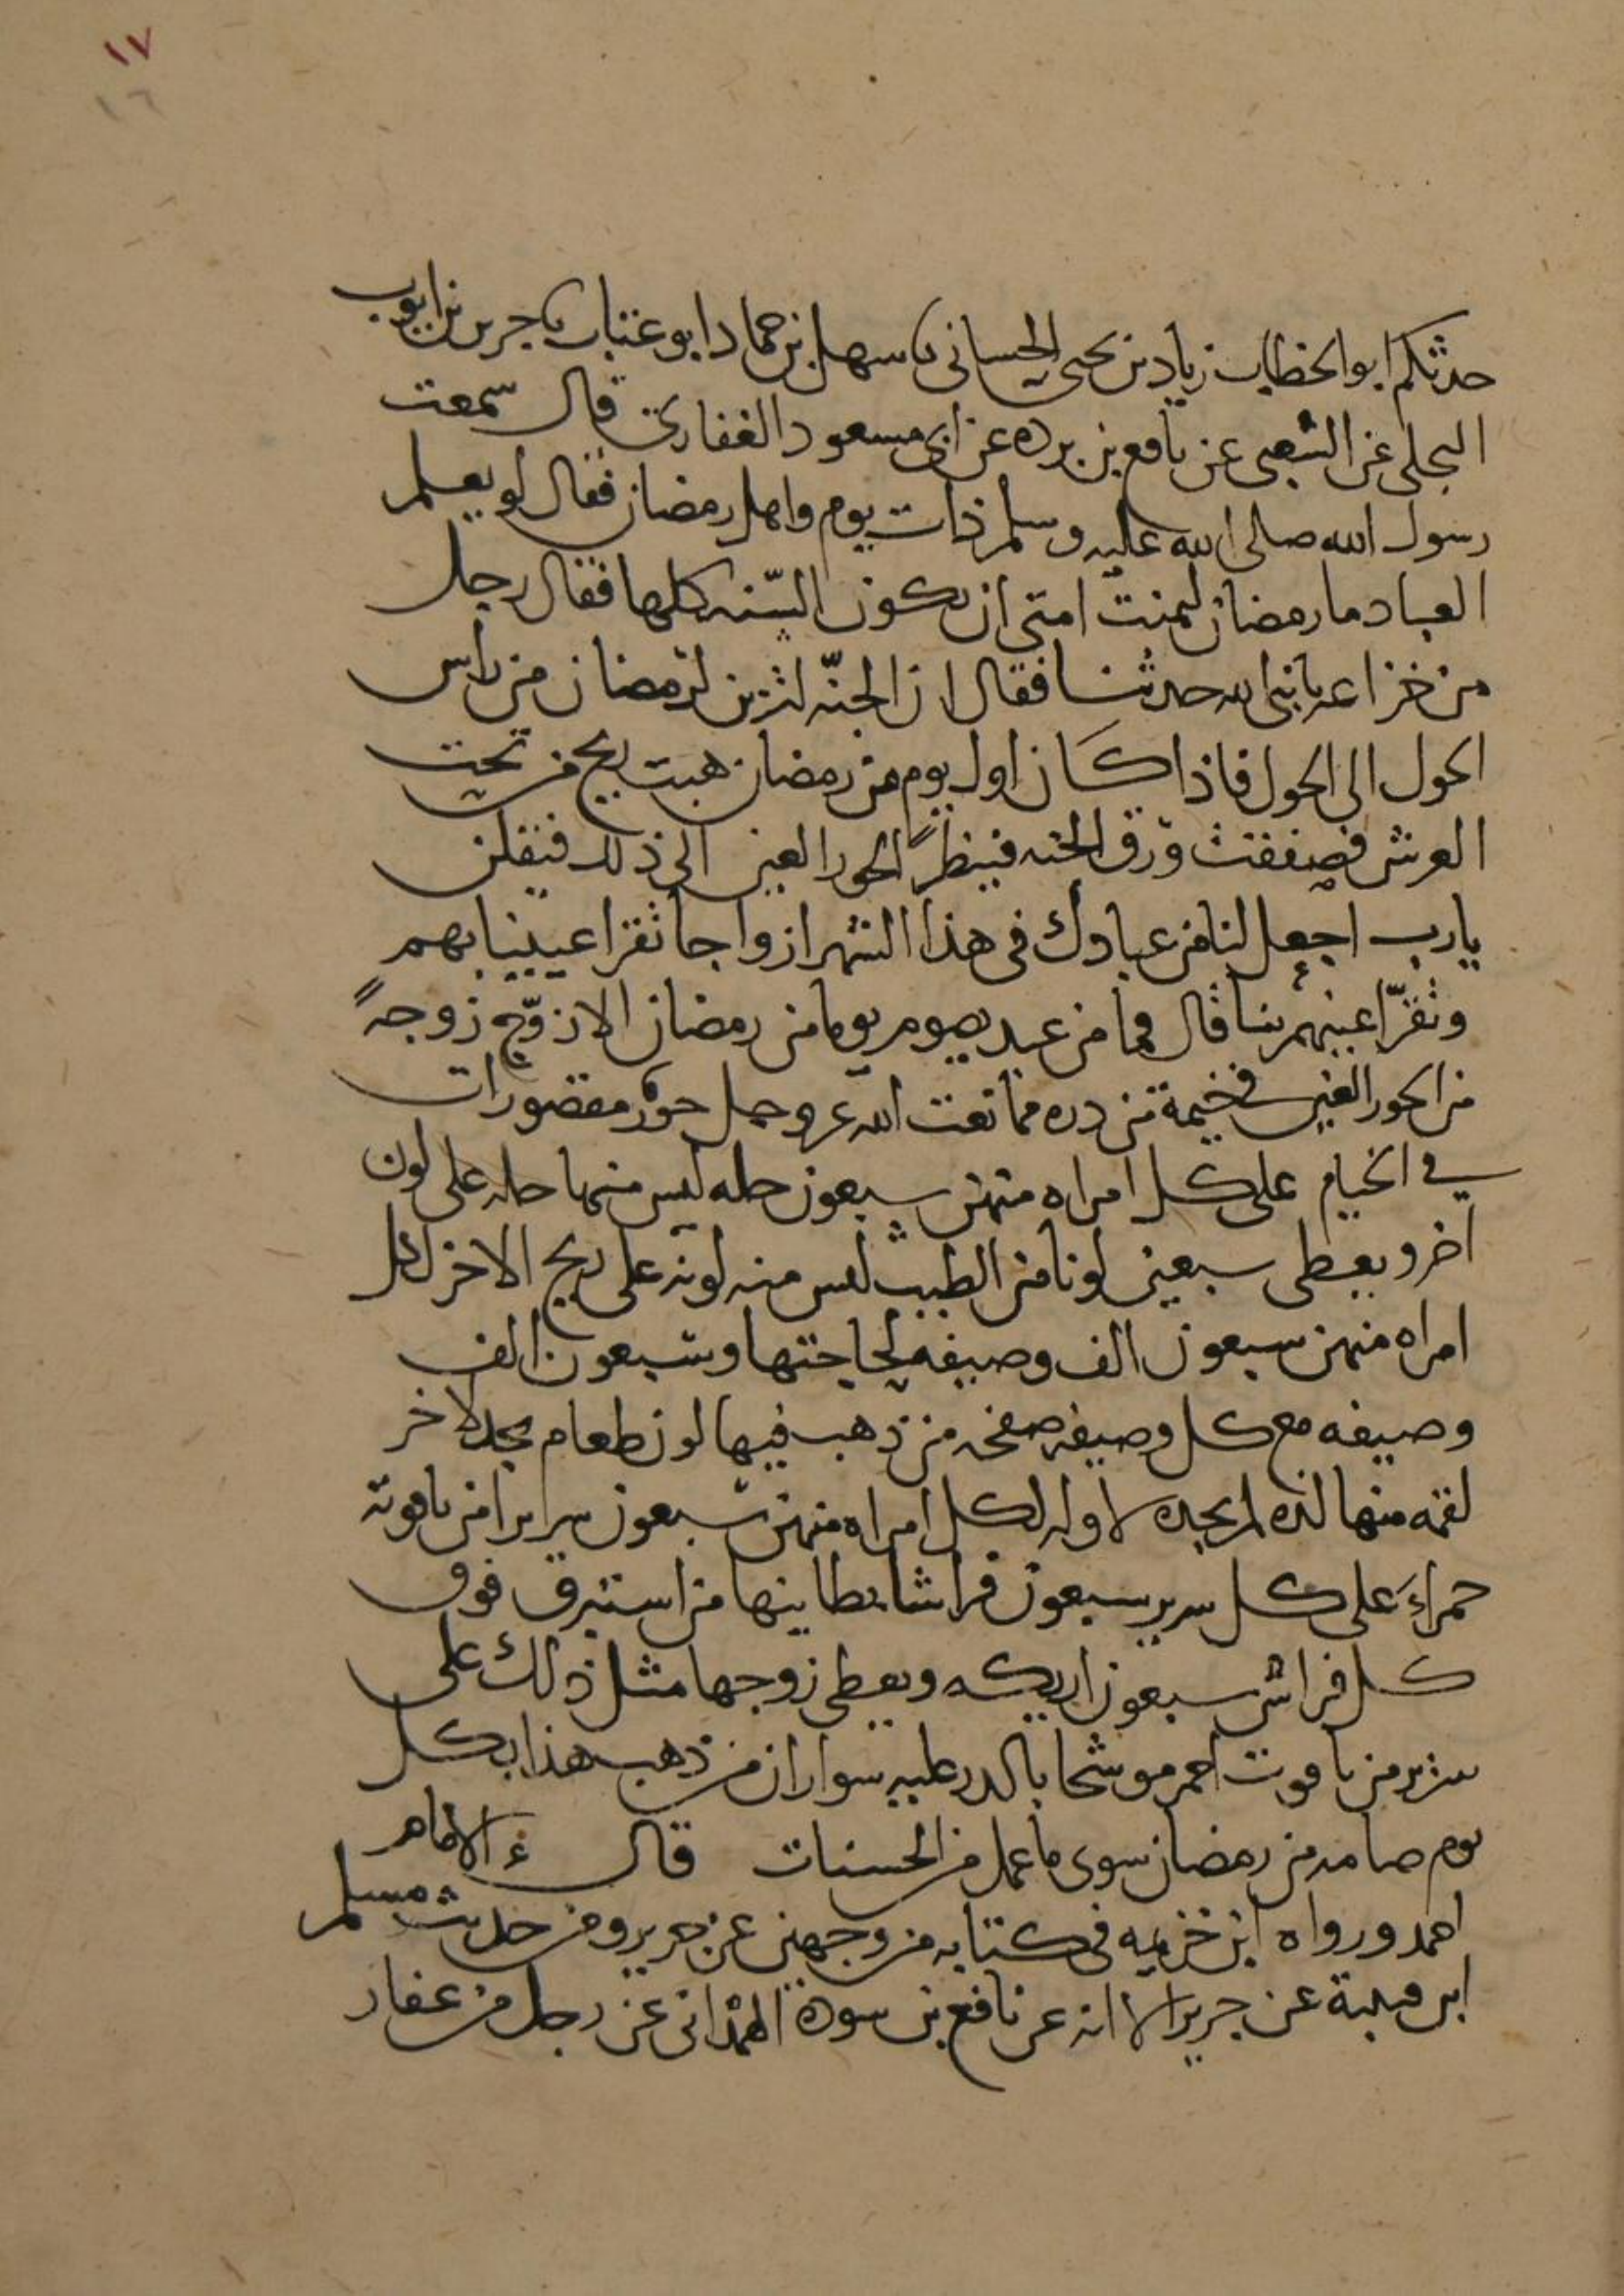 ١٧
١٦
حدثكم ابو الخطاب زياد بن يحيى الحساني نا سهل بن حماد ابو عتاب نا جرير بن ايوب
البجلي عن الشعبي عن نافع بن برده عن ابي مسعود الغفاري قال سمعت
رسول الله صلى الله عليه وسلم ذات يوم واهل رمضان فقال لو يعلم
العباد ما رمضان لتمنت امتي ان يكون السّنه كلها فقال رجل
من خزاعه يا نبي الله حدثنا فقال ان الجنّه لتزين لرمضان من راس
الحول الى الحول فاذا كان اول يوم من رمضان هبت ريح من تحت
العرش فصفقت ورق الجنه فينظر الحور العين الى ذلك فتقلن
يارب اجعل لنا من عبادك في هذا الشهر ازواجا تقر اعيننا بهم
وتقرّ اعينهم بنا قال فما من عبد يصوم يوما من رمضان الا زوّج زوجةً
من الحور العين في خيمة من دره مما نعت الله عز وجل حور مقصورات
في الخيام على كل امراه منهن سبعون حله ليس منها حله على لون
اخر ويعطى سبعين لونا من الطيب ليس منه لونه على ريح الاخر لكل
امراه منهن سبعون الف وصيفه لحاجتها وسبعون الف
وصيفه مع كل وصيفه صفحه من ذهب فيها لون طعام يجد لاخر
لقمه منها لذه لم يجده لاوله لكل امراه منهن سبعون سريرا من ياقوته
حمراءَ على كل سرير سبعون فراشا بطاينها من استبرق فوق
كل فراش سبعون اريكه ويعطى زوجها مثل ذلك على
سرير من ياقوت احمر موشحا بالدر عليه سواران من ذهب هذا بكل
يوم صامه من رمضان سوى ما عمل من الحسنات قال الامام
احمد ورواه ابن خزيمه في كتابه من وجهين عن جرير ومن حديث مسلم
ابن قتيبة عن جرير الا انه عن نافع بن سوده الهمذاني عن رجل من غفار